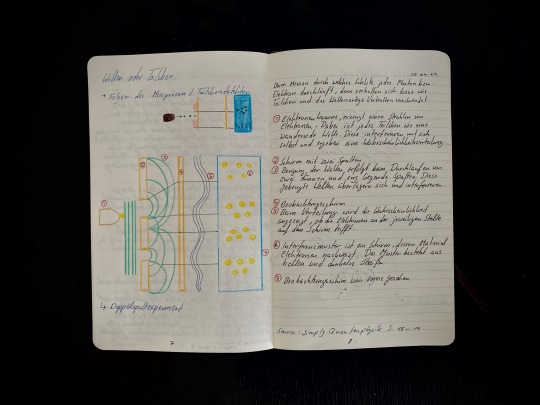 Wellen oder Teilchen
→ Folgen des Messprozesses / Teilchendetektor
① ② ③ ④ ⑤ ⑥ ⑦
↳ Doppelspaltexperiment
7
Beim Messen durch welches Spalte jedes Photon bzw.
Elektron durchläuft, dann verhalten sich diese wie
Teilchen und das Wellenartige Verhalten verschwindet
① Elektronenkanone, erzeugt einen Strahlen von
Elektronen. Dabei ist jedes Teilchen wie eine
wandernde Welle. Diese interferieren mit sich
selbst und ergeben eine Wahrscheinlichkeitsverteilung.
② Schirm mit zwei Spalten
③ Beugung der Wellen erfolgt beim Durchlaufen von
zwei dünnen und eng liegende Spalten. Diese
gebeugte Wellen überlagern sich und interferieren
④ Beobachtungsschirm
⑤ Beim Verteilung wird die Wahrscheinlichkeit
angezeigt, ob die Elektronen an der jeweiligen Stelle
auf den Schirm trifft.
⑥ Interferenzmuster ist ein Schirm dessen Material
Elektronen nachweist. Das Muster besteht aus
hellen und dunklen Streifen
⑦ Beobachtungsschirm von vorne gesehen
Source: Simply Quantenphysik S.
8